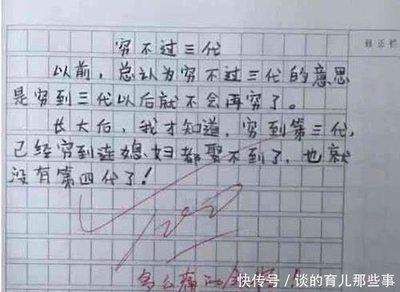 穷不过三代
以前，总认为穷不过三代的意思
是穷到三代以后就不会再穷了。
长大后，我才知道，穷到第三代，
已经穷到连媳妇都娶不到了，也就
没有第四代了！
100
多么痛
快传号/谈的育儿那些事